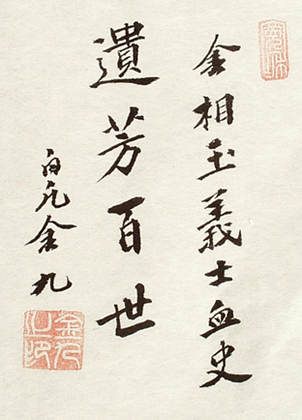 金相玉義士血史
遺芳百世
白凡金九
金九之印